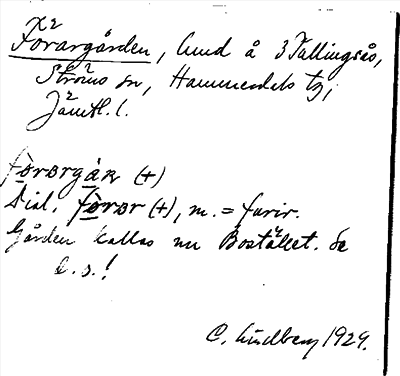 x2
Forargården, hmd å 3 Tallingsås,
Ströms sn, Hammerdals tg,
Jämtl. l.
förorgåṛṇ (+)
Dial. föror (+), m. = furir.
Gården kallas nu Bostället. Se
d. o.!
C. Lindberg 1929.